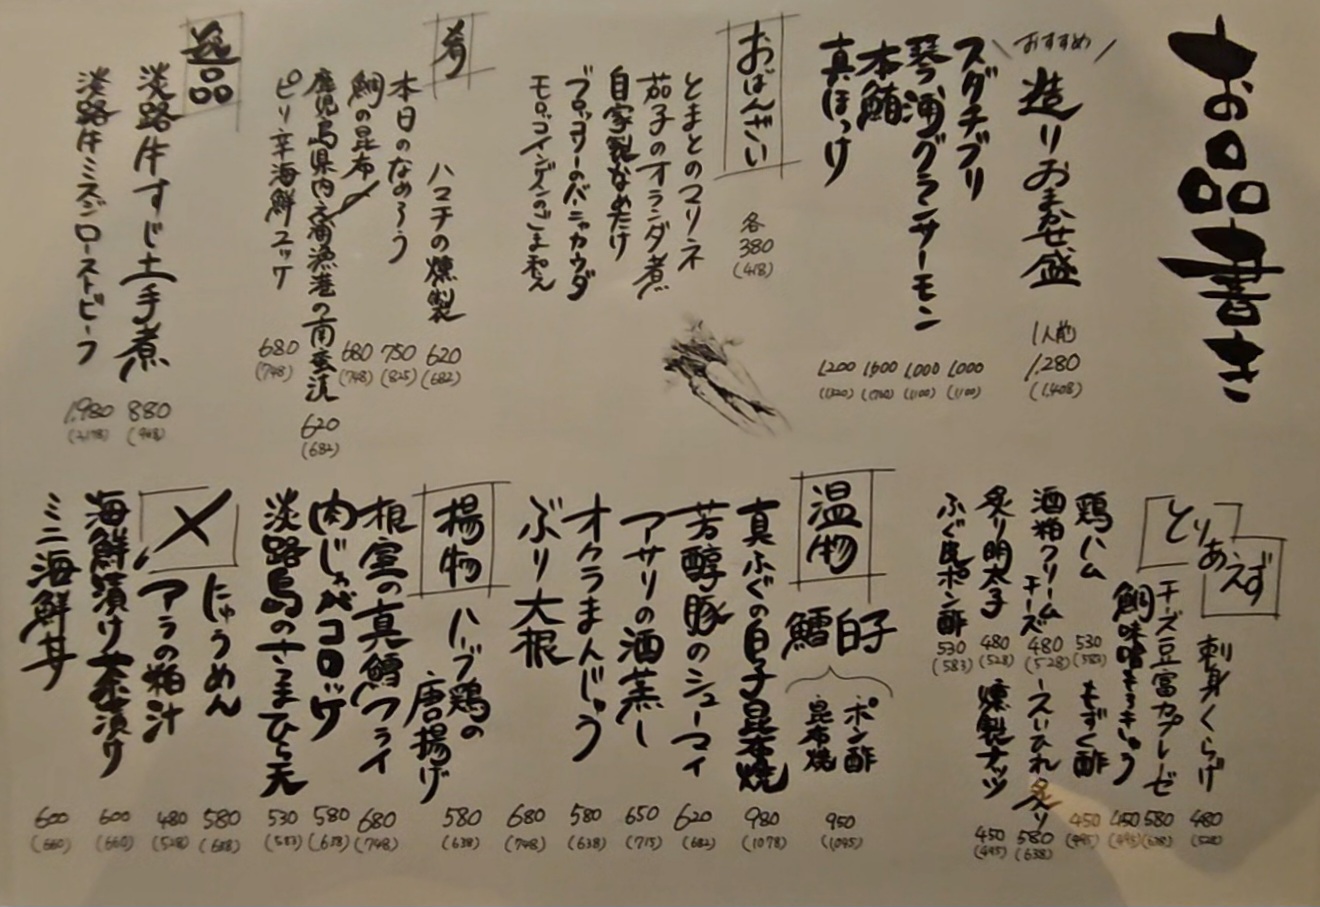 お品書き
おすすめ
造りおまかせ盛 1人前 1,280 (1,408)
スダチブリ 1,000 (1100)
琴浦グランサーモン 1,000 (1100)
本鮪 1,600 (1760)
真ほっけ 1,200 (1320)
おばんざい 各380 (418)
とまとのマリネ
茄子のオランダ煮
自家製なめたけ
ブロッコリーのバーニャカウダ
モロッコインゲンのごま和え
肴
ハマチの燻製 620 (682)
本日のなめろう 750 (825)
鯛の昆布〆 680 (748)
鹿児島県内之浦漁港の南蛮漬 620 (682)
ピリ辛海鮮ユッケ 680 (748)
逸品
淡路牛すじ土手煮 880 (968)
淡路牛ミスジローストビーフ 1,980 (2,178)
とりあえず
刺身くらげ 480 (528)
チーズ豆富カプレーゼ 580 (638)
鯛味噌きゅうきゅう 450 (495)
鶏ハム 530 (583)
もずく酢 450 (495)
酒粕クリームチーズ 480 (528)
えいひれ炙り 580 (638)
炙り明太子 480 (528)
燻製ナッツ 450 (495)
ふぐ皮ポン酢 530 (583)
温物
鱈白子 ポン酢 昆布焼 950 (1045)
真ふぐの白子昆布焼 980 (1078)
芳醇豚のシューマイ 620 (682)
アサリの酒蒸し 650 (715)
オクラまんじゅう 580 (638)
ぶり大根 680 (748)
揚物
ハーブ鶏の唐揚げ 580 (638)
根室の真鱈フライ 680 (748)
肉じゃがコロッケ 580 (638)
淡路島のさつまひら天 530 (583)
〆
にゅうめん 580 (638)
アラの粕汁 480 (528)
海鮮漬け茶漬け 600 (660)
ミニ海鮮丼 600 (660)